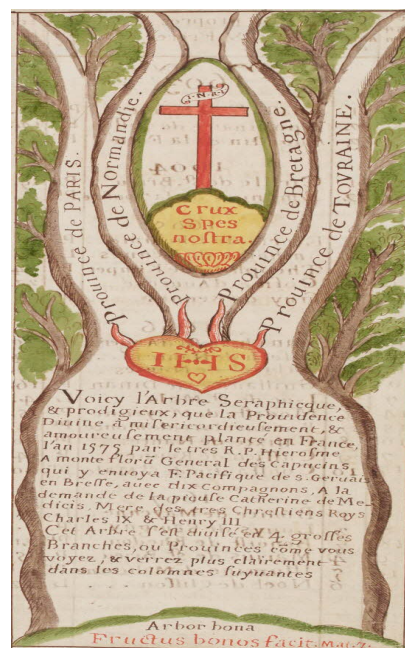 I.N.R.I
Crux
Spes
nostra.
Prouince de PARIS.
prouince de Normandie.
Prouince de Bretagne.
Prouince de TOVRAINE.
IHS
Voicy l'Arbre Seraphicque,
& prodigieux, que la Prouidence
Diuine à misericordieusement, &
amoureusement planté en France,
l'an 1575 par le tres R. P. Hierosme
A monte florū General des Capucins,
qui y enuoya F. Pacifique de S. Geruais
en Bresse, auec dix Compagnons, A la
demande de la pieuse Catherine de Me-
dicis, Mere des tres Chrestiens Roys
Charles IX & Henry III
Cet Arbre s'est diuisé en 4 grosses
Branches, ou Prouinces cōme vous
voyez, & verrez plus clairement
dans les colomnes suyuantes
Arbor bona
Fructus bonos facit. M. 7.